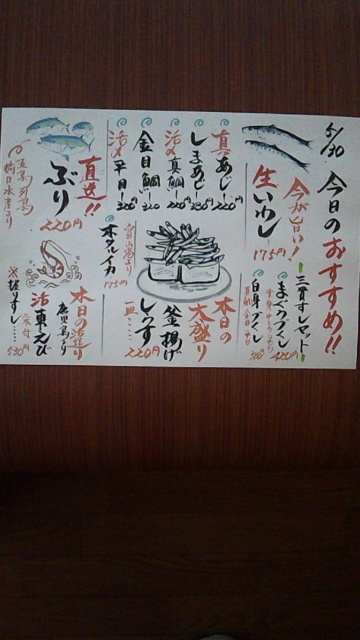 5/30 今日のおすすめ!!
今が旨い!
生いわし
175円
三貫すしマット
まぐろづくし
420円
白身づくし
真あじ…220円
しまあじ…
活〆真鯛…220
金目鯛…
活〆平目…
本日の
大盛り
釜揚げ
しらす
一皿……220円
富山湾より
本ホタルイカ
175円
直送!!
ぶり
220円
本日の活造り
鹿児島より
活車えび
※握りずし……530円